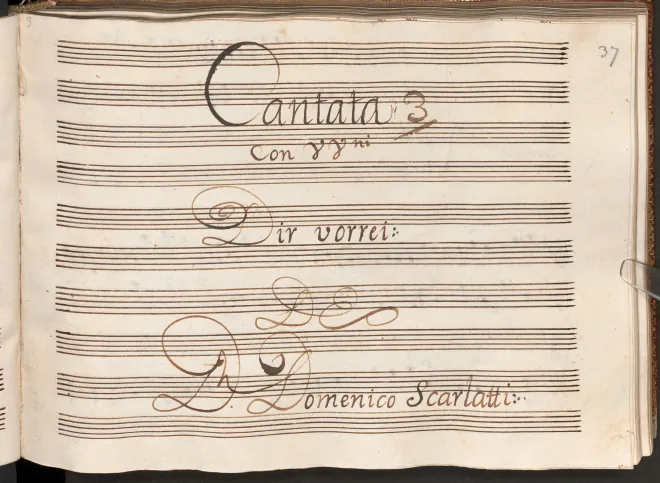 37
Cantata 3
Con VVni
Dir vorrei:
De
Dn. Domenico Scarlatti: